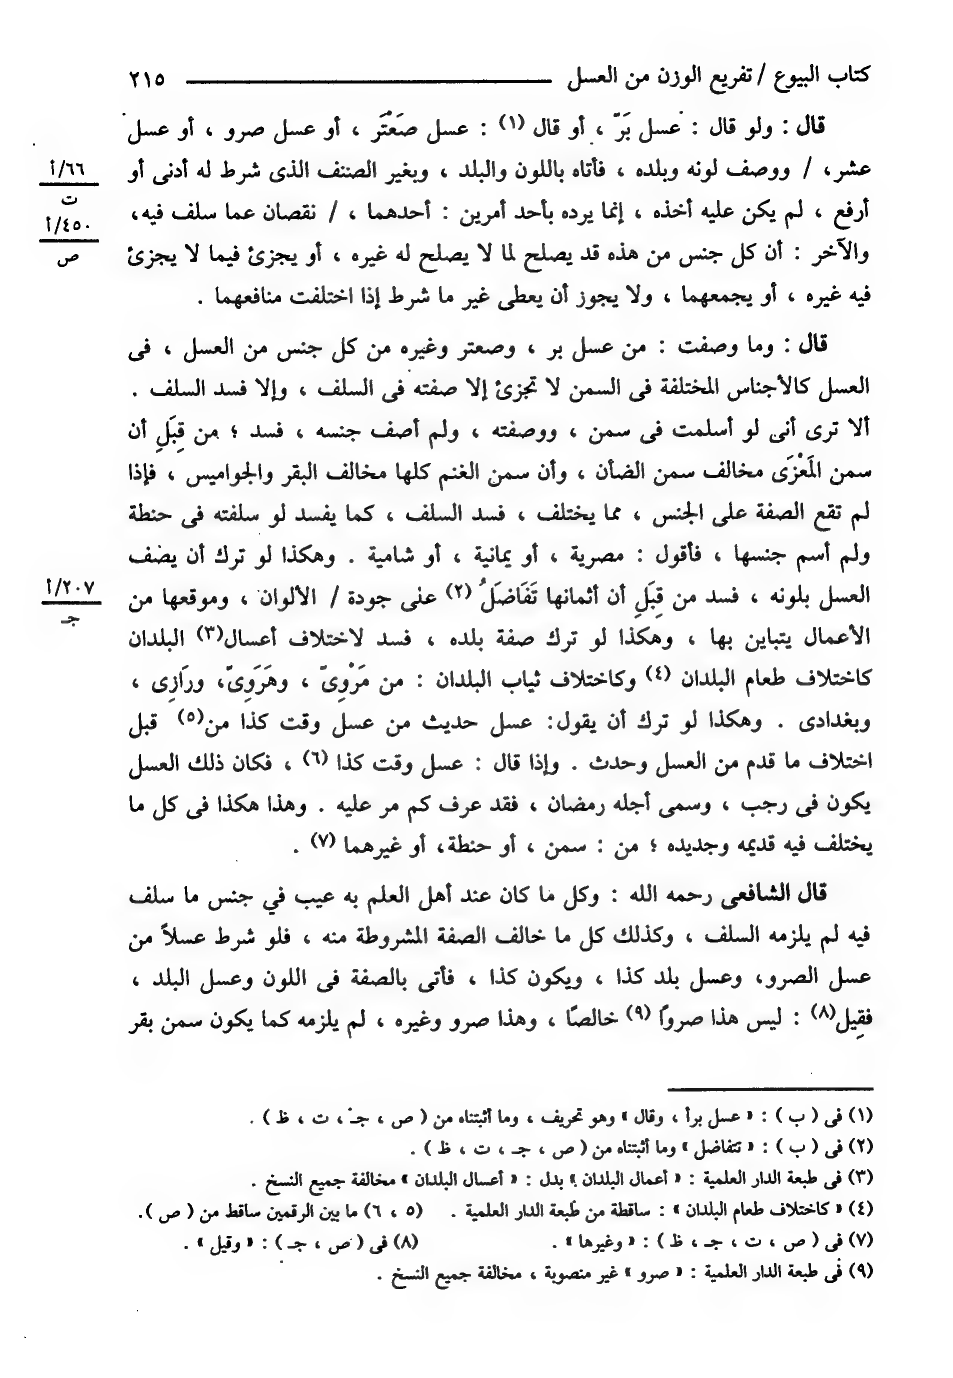 كتاب البيوع / تفريع الوزن من العسل ــــــــــــ ٢١٥
قال : ولو قال : عسل بَرّ ، أو قال (١) : عسل صَعْتَر ، أو عسل صرو ، أو عسل
عشر، / ووصف لونه وبلده ، فأتاه باللون والبلد ، وبغير الصنف الذى شرط له أدنى أو
٦٦/أ
ت
أرفع ، لم يكن عليه أخذه ، إنما يرده بأحد أمرين : أحدهما ، / نقصان عما سلف فيه،
٤٥٠/أ
ص
والآخر : أن كل جنس من هذه قد يصلح لما لا يصلح له غيره ، أو يجزئ فيما لا يجزئ
فيه غيره ، أو يجمعهما ، ولا يجوز أن يعطى غير ما شرط إذا اختلفت منافعهما .
قال : وما وصفت : من عسل بر ، وصعتر وغيره من كل جنس من العسل ، فى
العسل كالأجناس المختلفة فى السمن لا تجزئ إلا صفته فى السلف ، وإلا فسد السلف .
ألا ترى أنى لو أسلمت فى سمن ، ووصفته ، ولم أصف جنسه ، فسد ؛ من قِبَلِ أن
سمن المَعْزَى مخالف سمن الضأن ، وأن سمن الغنم كلها مخالف البقر والجواميس ، فإذا
لم تقع الصفة على الجنس ، مما يختلف ، فسد السلف ، كما يفسد لو سلفته فى حنطة
ولم أسم جنسها ، فأقول : مصرية ، أو يمانية ، أو شامية . وهكذا لو ترك أن يصف
العسل بلونه ، فسد من قِبَلِ أن أثمانها تَفَاضَلُ (٢) على جودة / الألوان ، وموقعها من
٢٠٧/أ
جـ
الأعمال يتباين بها ، وهكذا لو ترك صفة بلده ، فسد لاختلاف أعسال(٣) البلدان
كاختلاف طعام البلدان (٤) وكاختلاف ثياب البلدان : من مَرْوِىّ ، وهَرَوِىّ، ورَازِى ،
وبغدادى . وهكذا لو ترك أن يقول: عسل حديث من عسل وقت كذا من(٥) قبل
اختلاف ما قدم من العسل وحدث . وإذا قال : عسل وقت كذا (٦) ، فكان ذلك العسل
يكون فى رجب ، وسمى أجله رمضان ، فقد عرف كم مر عليه . وهذا هكذا فى كل ما
يختلف فيه قديمه وجديده ؛ من : سمن ، أو حنطة، أو غيرهما (٧) .
قال الشافعى رحمه الله : وكل ما كان عند أهل العلم به عيب في جنس ما سلف
فيه لم يلزمه السلف ، وكذلك كل ما خالف الصفة المشروطة منه ، فلو شرط عسلاً من
عسل الصرو، وعسل بلد كذا ، ويكون كذا ، فأتى بالصفة فى اللون وعسل البلد ،
فقِيل(٨) : ليس هذا صروًا (٩) خالصًا ، وهذا صرو وغيره ، لم يلزمه كما يكون سمن بقر
(١) فى ( ب ) : « عسل براً ، وقال » وهو تحريف ، وما أثبتناه من ( ص ، جـ ، ت ، ظ ) .
(٢) فى ( ب ) : « تتفاضل » وما أثبتناه من ( ص ، جـ ، ت ، ظ ) .
(٣) فى طبعة الدار العلمية : « أعمال البلدان » بدل : « أعسال البلدان » مخالفة جميع النسخ .
(٤) « كاختلاف طعام البلدان » : ساقطة من طبعة الدار العلمية . (٥ ، ٦) ما بين الرقمين ساقط من ( ص ).
(٧) فى ( ص ، ت ، جـ ، ظ ) : « وغيرها » . (٨) فى ( ص ، جـ ) : « وقيل » .
(٩) فى طبعة الدار العلمية : « صرو » غير منصوبة ، مخالفة جميع النسخ .